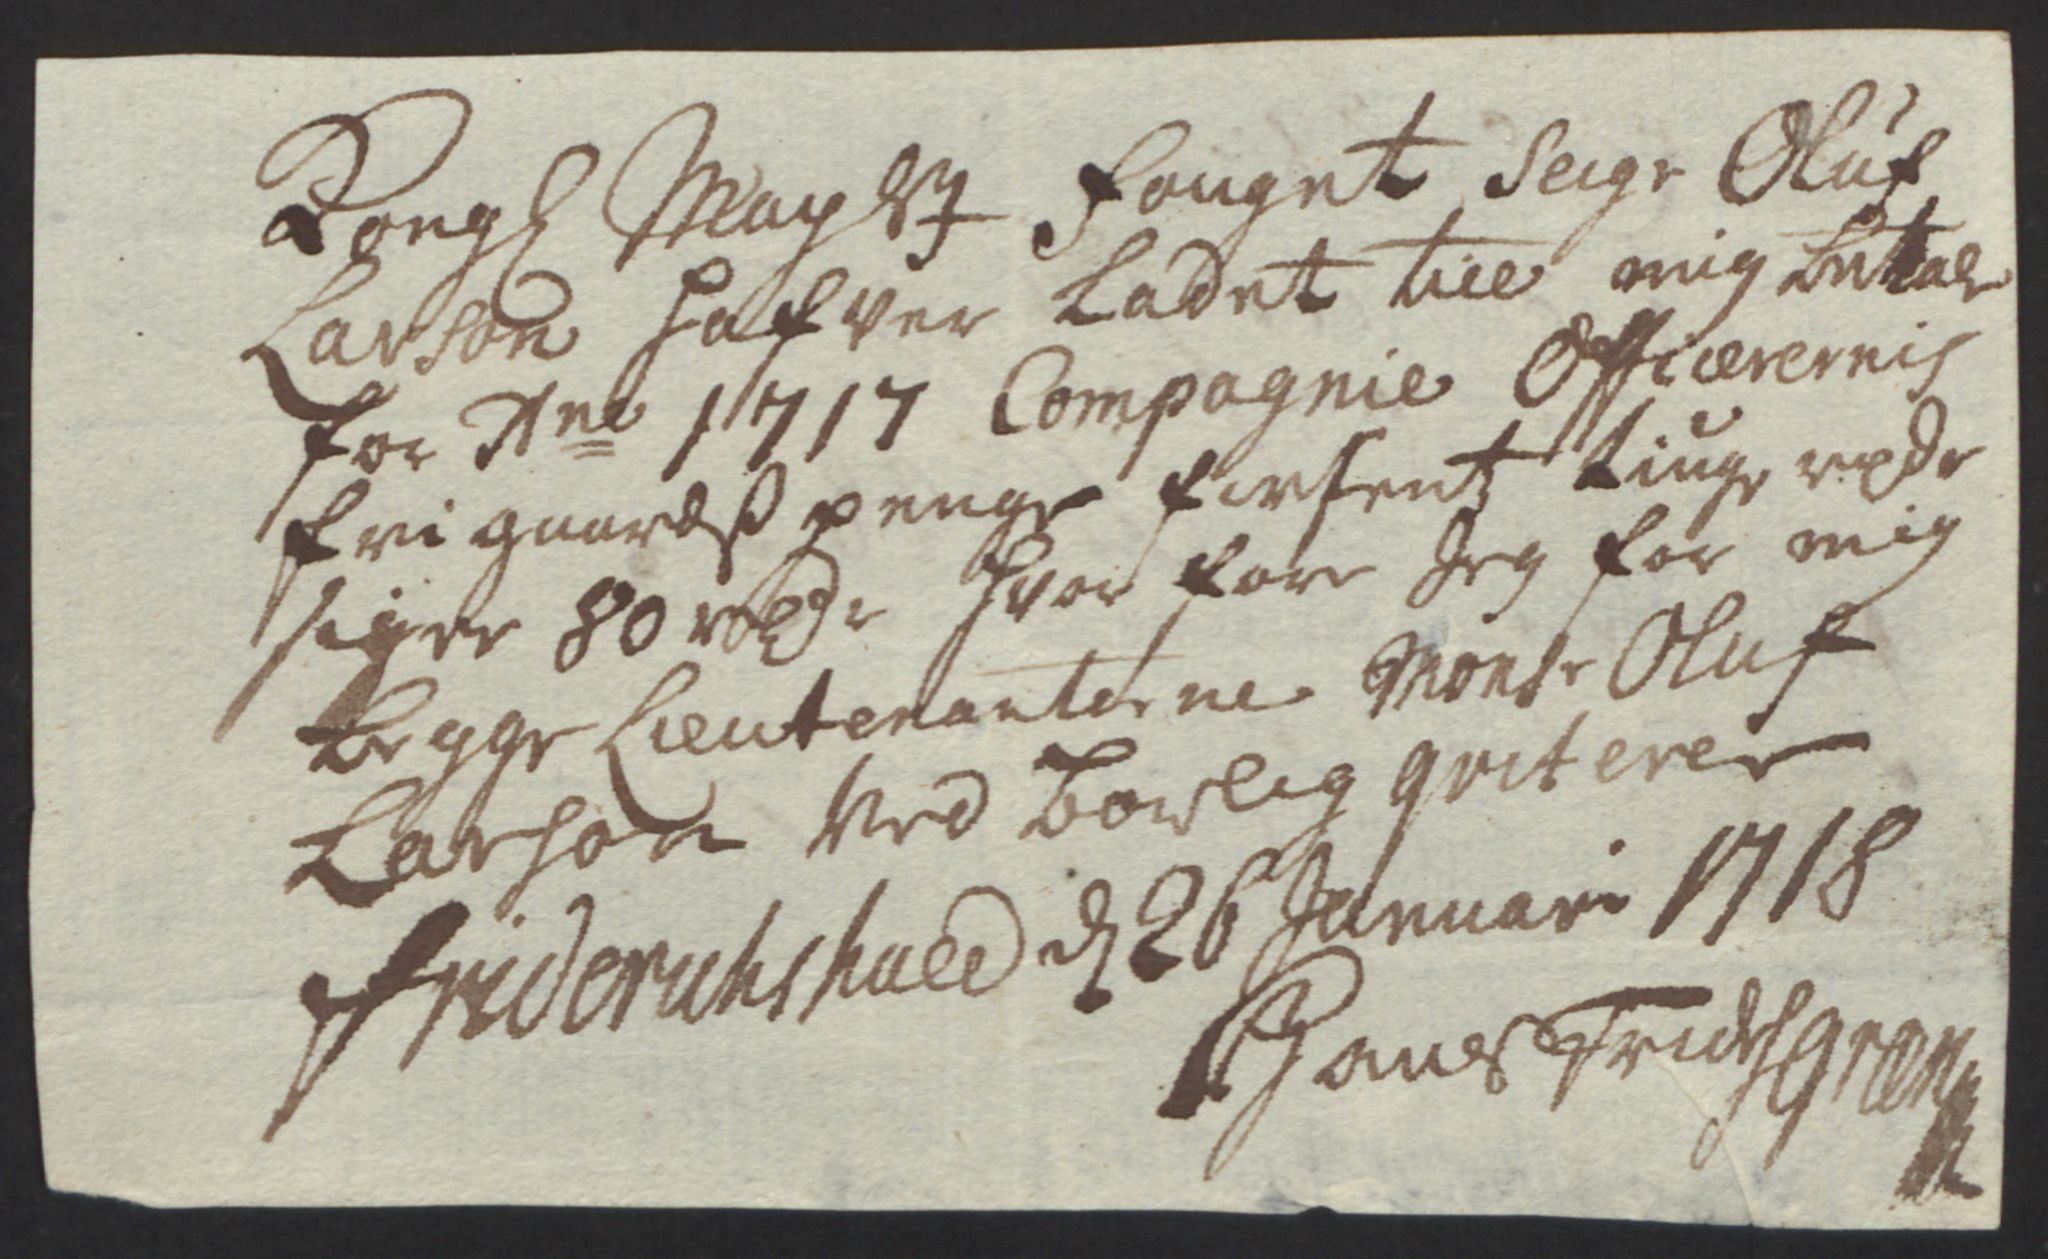 Kongl Mayst: Fouget Seigr Oluf
Larsøn hafver Ladet till mig betale
for Ano 1717 Compagnie Officerernis
frigaardss penge firsentz tiuge rdr
siger 80 rdr hvor fore Jeg for mig
begge Lieutenanterne Monsr Oluf
Larsøn ved børlig qviterer
Friderichshald d 26 Januari 1718
Hans Fridr